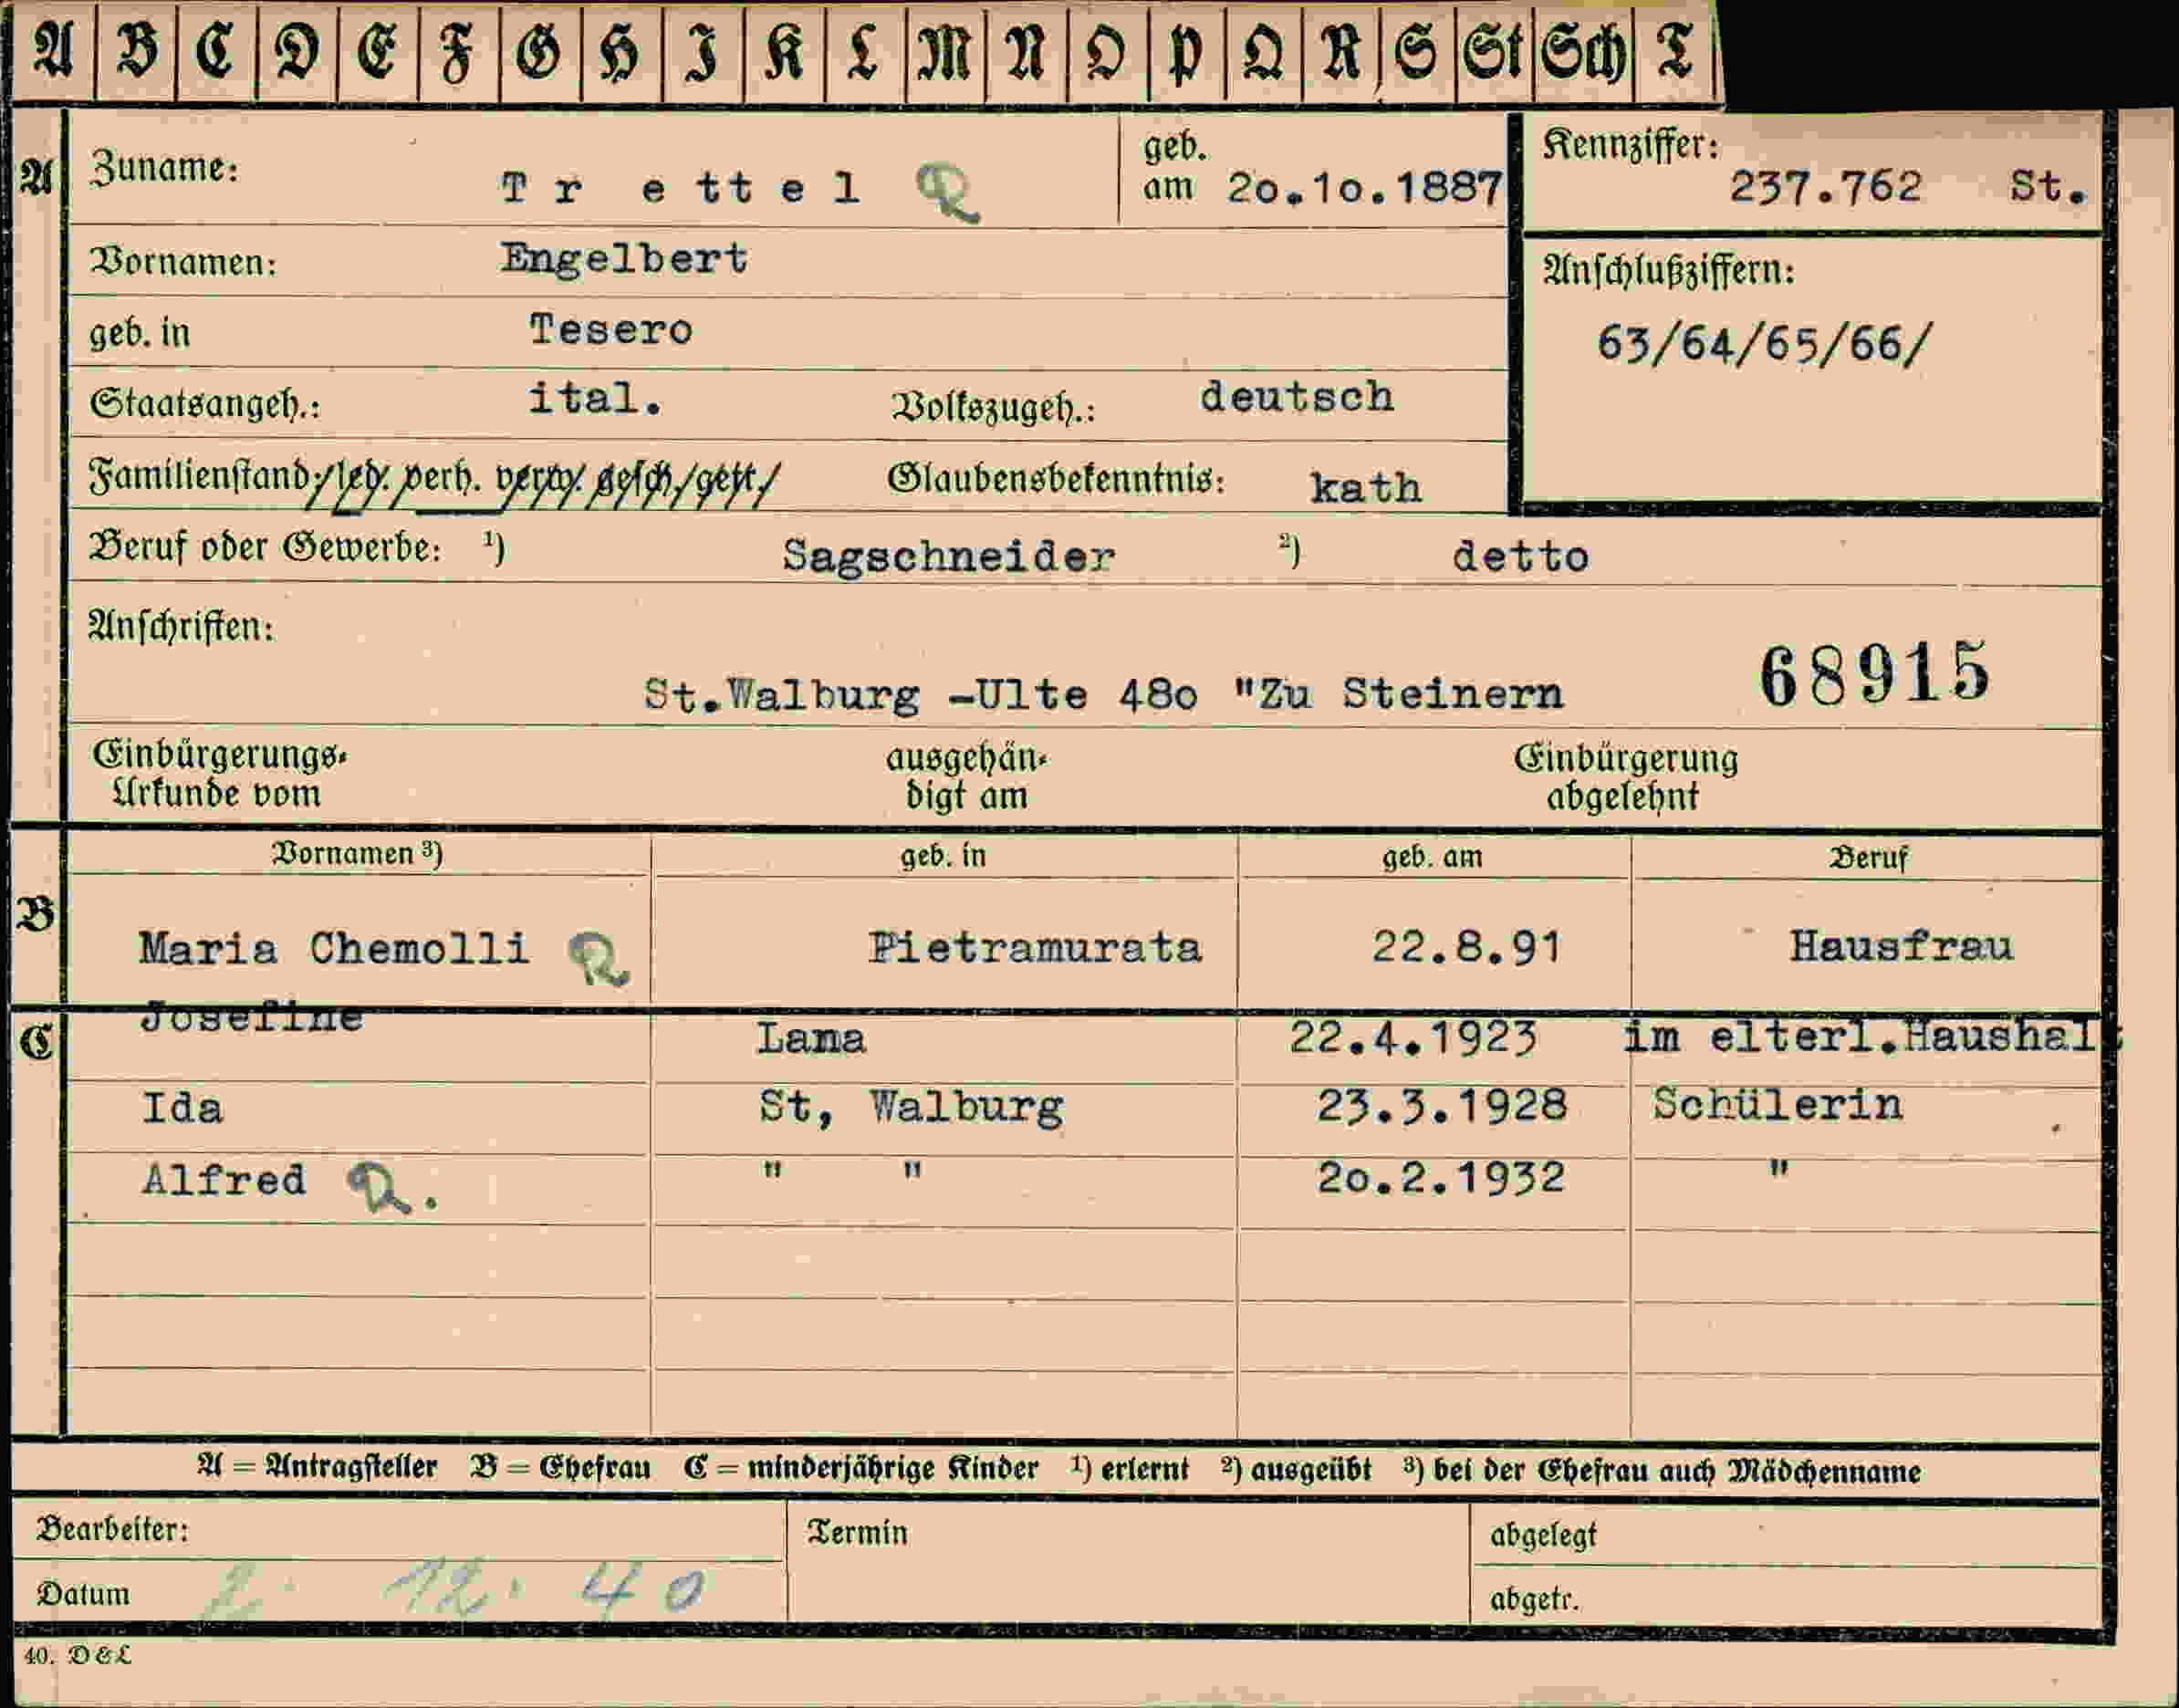 A B C D E F G H I K L M N O P Q R S St Sch T
A Zuname: Tr ettel R geb. am 2o.1o.1887 Kennziffer: 237.762 St.
Vornamen: Engelbert Anschlußziffern:
geb. in Tesero 63/64/65/66/
Staatsangeh.: ital. Volkszugeh.: deutsch
Familienstand: led. verh. verw. gesch. getr. Glaubensbekenntnis: kath
Beruf oder Gewerbe: 1) Sagschneider 2) detto
Anschriften:
St.Walburg -Ulte 48o "Zu Steinern 68915
Einbürgerungs- ausgehän- Einbürgerung
Urkunde vom digt am abgelehnt
Vornamen 3) geb. in geb. am Beruf
B Maria Chemolli R Pietramurata 22.8.91 Hausfrau
C Josefine Lana 22.4.1923 im elterl.Haushalt
Ida St, Walburg 23.3.1928 Schülerin
Alfred R. " " 2o.2.1932 "
A = Antragsteller B = Ehefrau C = minderjährige Kinder 1) erlernt 2) ausgeübt 3) bei der Ehefrau auch Mädchenname
Bearbeiter: Termin abgelegt
Datum 2. 12. 40 abgetr.
40. D & L